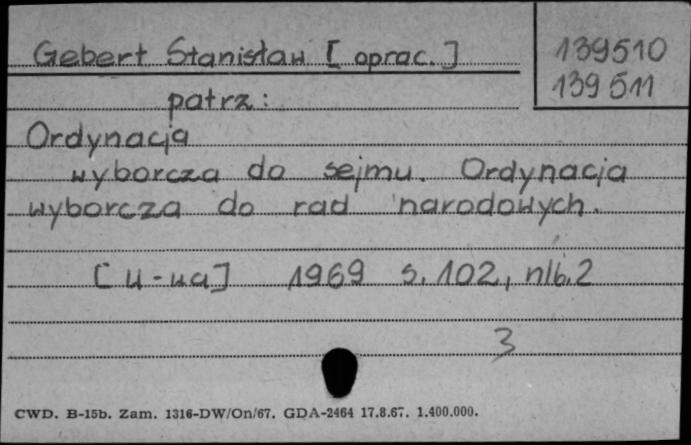 Gebert Stanisław [oprac.]
139510
139511
patrz:
Ordynacja
wyborcza do sejmu. Ordynacja
wyborcza do rad narodowych.
[W-wa] 1969 s. 102, nlb. 2
3
CWD. B-15b. Zam. 1316-DW/On/67. GDA-2464 17.8.67. 1.400.000.